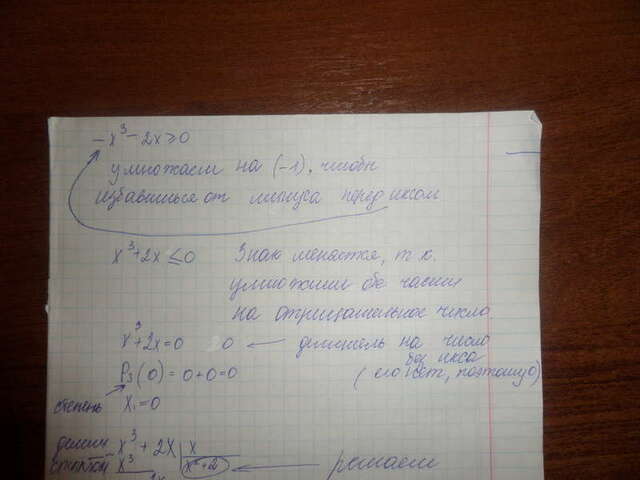 -x³-2x≥0
умножаем на (-1), чтобы
избавиться от минуса перед иксом
x³+2x≤0 Знак меняется, т.к.
умножили обе части
на отрицательное число
x³+2x=0 0 ← делитель на число
без икса
P₃(0)=0+0=0 (его нет, поэтому 0)
степень x₁=0
делим -x³+2x | x
столбиком x³ x²+2 ← решаем
2x